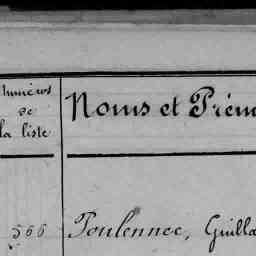 Numéros
de
la liste
Noms et Prén
566 Poulennec, Guilla